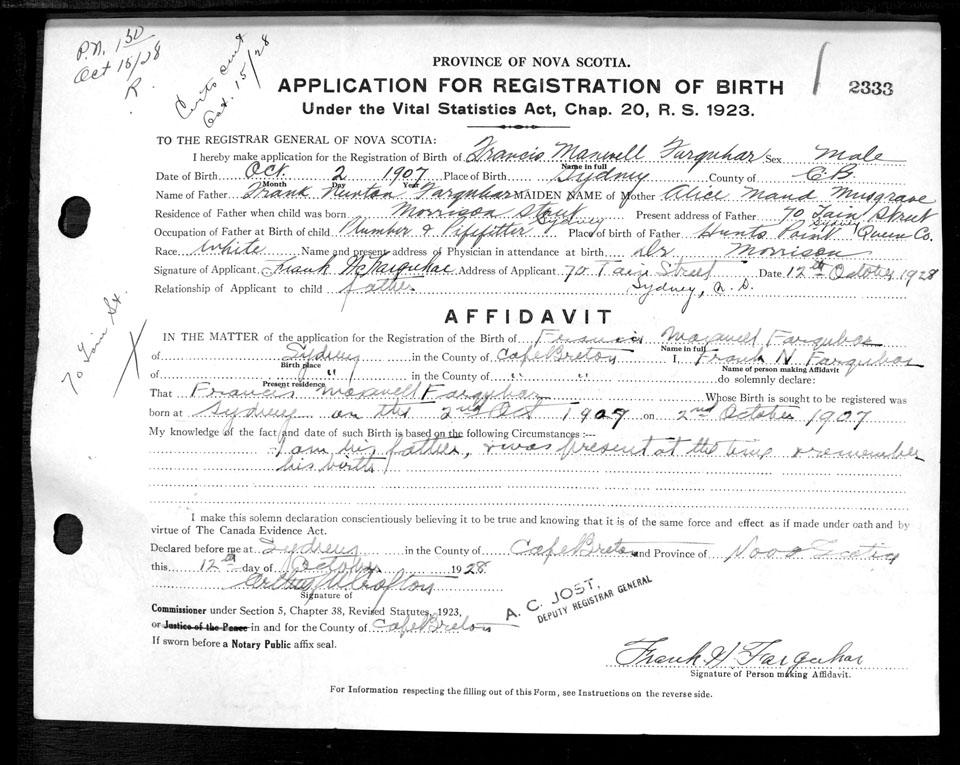 P.N. 1 50
Oct 15/28
R.
Certs out
Oct. 15/28
2333
PROVINCE OF NOVA SCOTIA.
APPLICATION FOR REGISTRATION OF BIRTH
Under the Vital Statistics Act, Chap. 20, R. S. 1923.
TO THE REGISTRAR GENERAL OF NOVA SCOTIA:
I hereby make application for the Registration of Birth of Francis Maxwell Farquhar Sex Male
Name in full
Date of Birth Oct. 2 1907 Place of Birth Sydney County of C.B.
Month Day Year
Name of Father Frank Newton Farquhar MAIDEN NAME of Mother Alice Maud Musgrave
Residence of Father when child was born Morrison Street Sydney Present address of Father 70 Tain Street Sydney
Occupation of Father at Birth of child Plumber & Pipefitter Place of birth of Father Hunts Point Queen Co.
Race White Name and present address of Physician in attendance at birth Dr. Morrison
Signature of Applicant Frank N Farquhar Address of Applicant 70 Tain Street Date 12th October 1928
Relationship of Applicant to child father Sydney, N.S.
70 Tain St
X
AFFIDAVIT
IN THE MATTER of the application for the Registration of the Birth of Francis Maxwell Farquhar
Name in full
of Sydney in the County of Cape Breton I, Frank N Farquhar
Birth place Name of person making Affidavit
of " in the County of " " do solemnly declare:
Present residence
That Francis Maxwell Farquhar Whose Birth is sought to be registered was
born at Sydney on the 2nd Oct 1907 on 2nd October 1907
My knowledge of the fact and date of such Birth is based on the following Circumstances :—
I am his father, & was present at the time & remember
his birth
I make this solemn declaration conscientiously believing it to be true and knowing that it is of the same force and effect as if made under oath and by
virtue of The Canada Evidence Act.
Declared before me at Sydney in the County of Cape Breton and Province of Nova Scotia
this 12th day of October 1928
Signature of
A. C. JOST,
DEPUTY REGISTRAR GENERAL
Commissioner under Section 5, Chapter 38, Revised Statutes, 1923,
or Justice of the Peace in and for the County of Cape Breton
If sworn before a Notary Public affix seal.
Frank N Farquhar
Signature of Person making Affidavit.
For Information respecting the filling out of this Form, see Instructions on the reverse side.